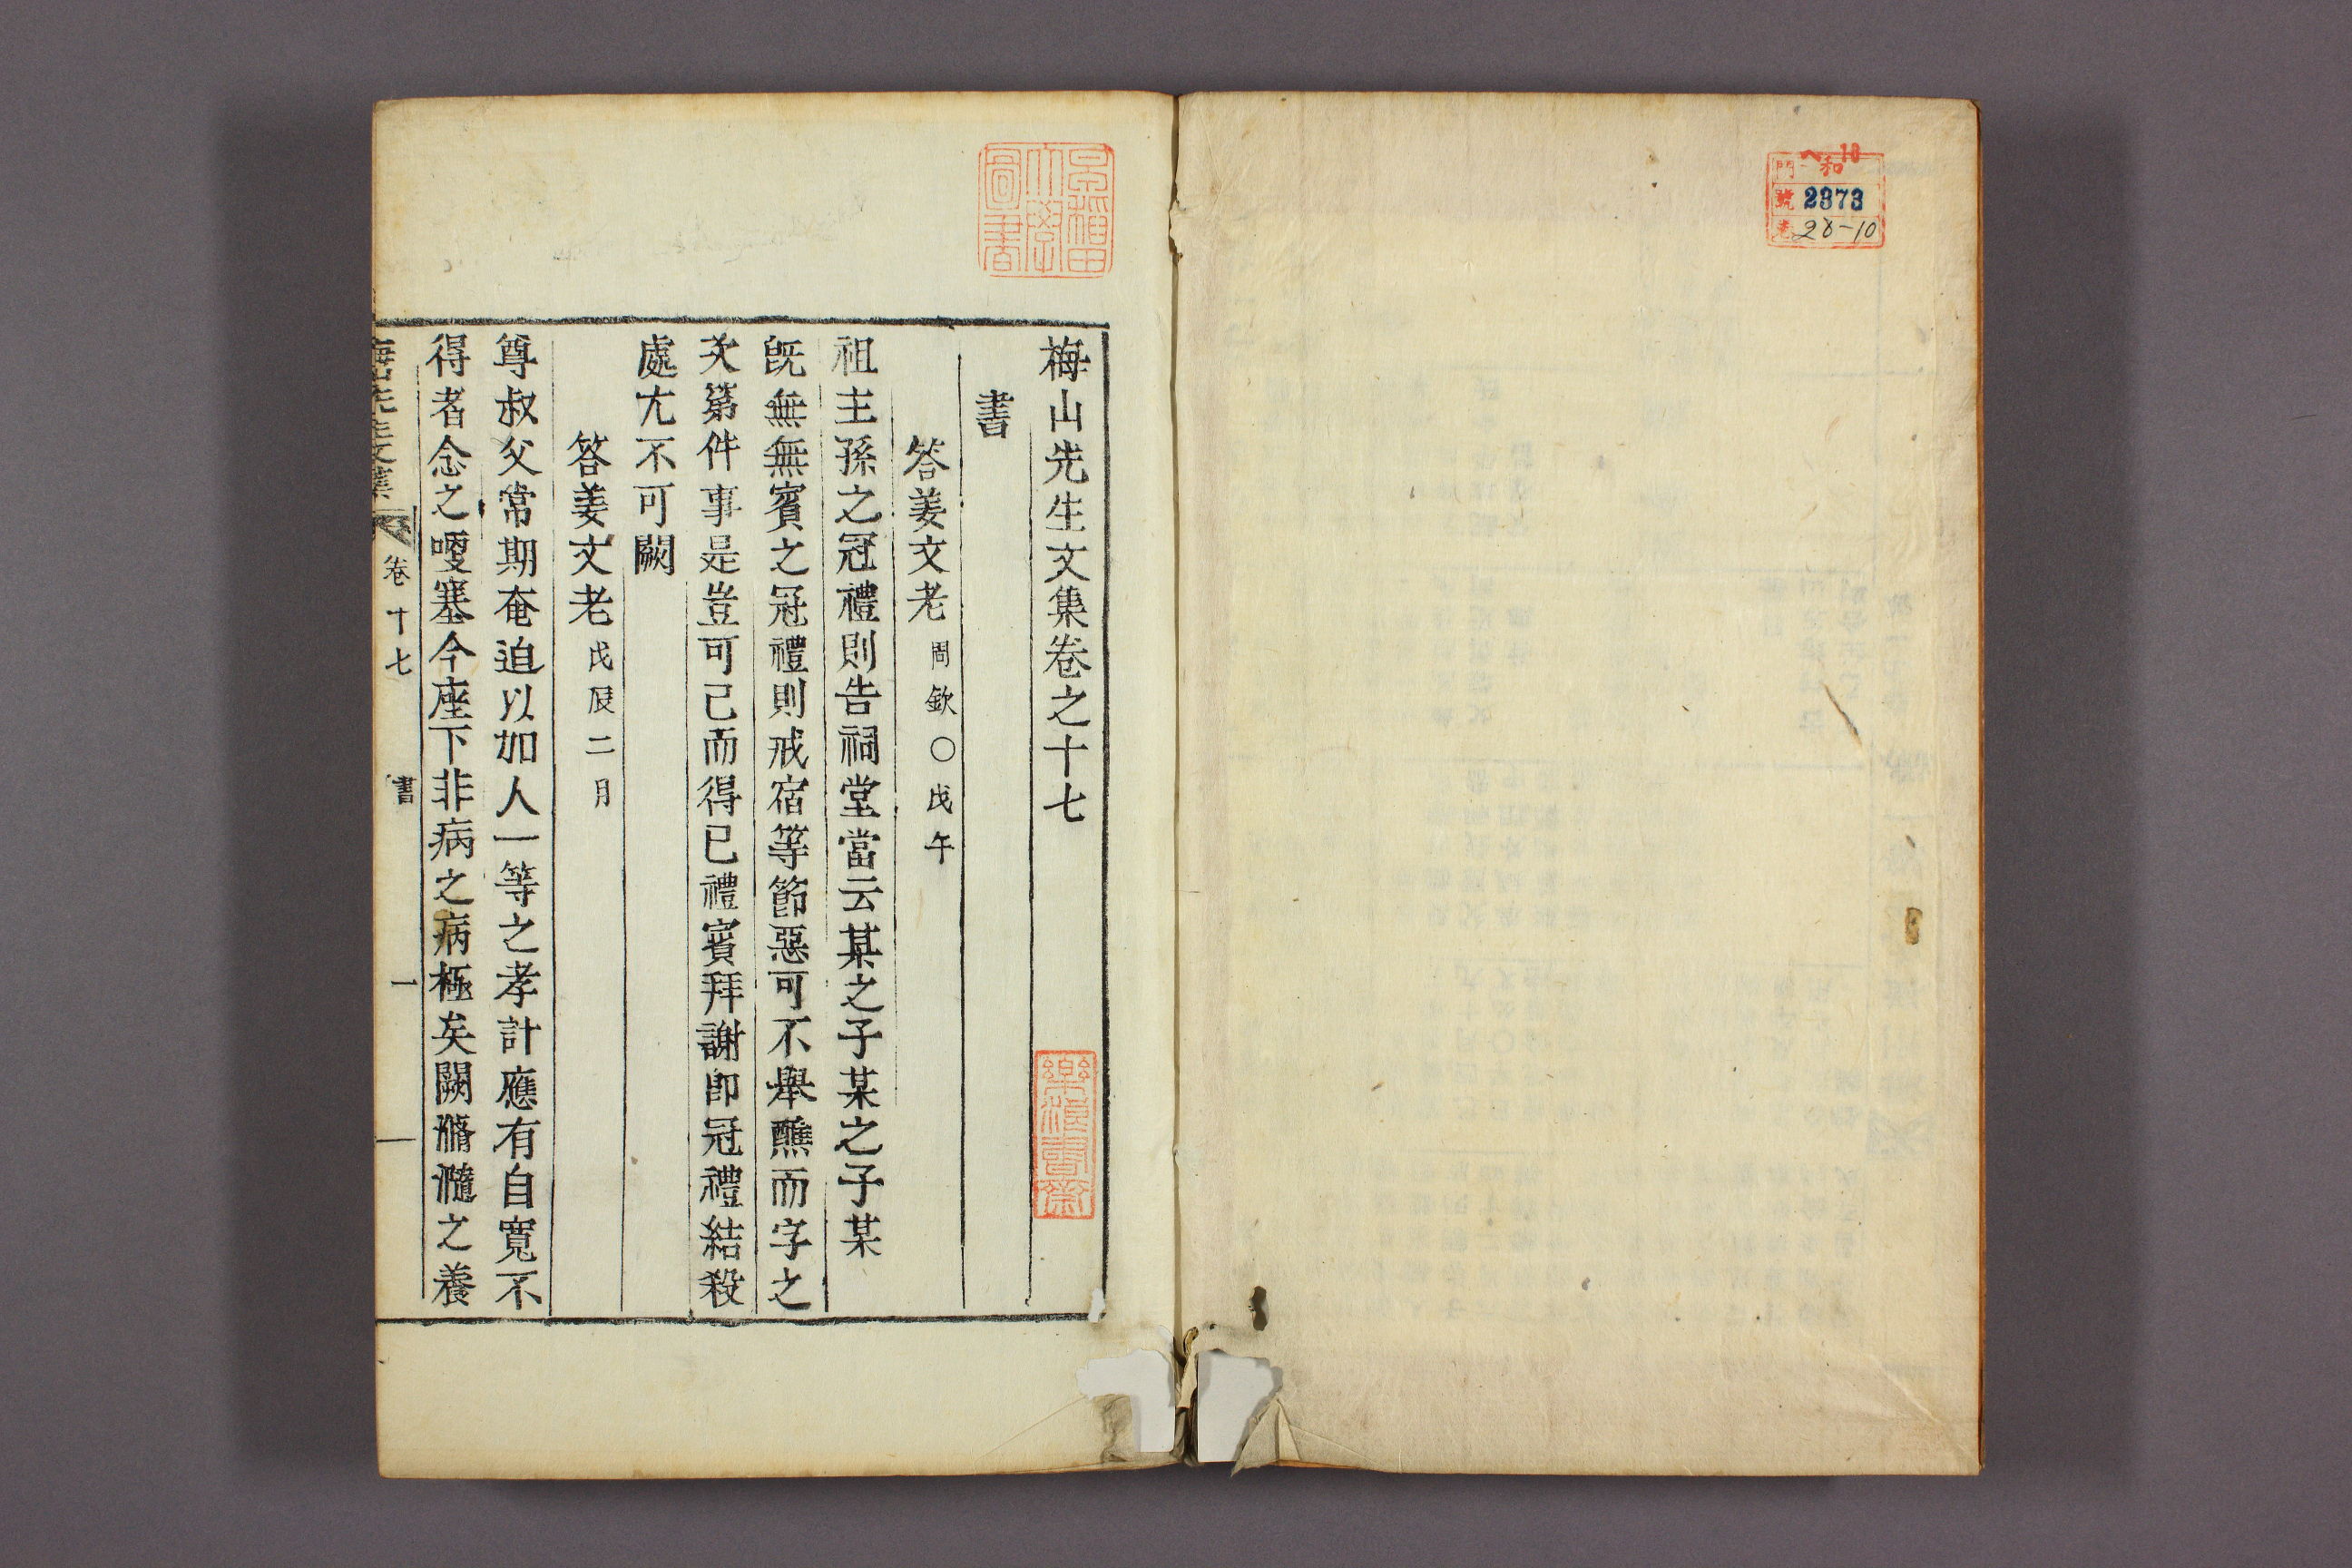 梅山先生文集卷之十七
書
答姜文老 周欽○戊午
祖主孫之冠禮則告祠堂當云某之子某之子某
旣無無賓之冠禮則戒宿等節惡可不舉醮而字之
次第件事是豈可已而得已禮賓拜謝卽冠禮結殺
處尤不可闕
答姜文老 戊辰二月
尊叔父常期奄迫以加人一等之孝計應有自寬不
得者念之嗄塞今座下非病之病極矣闕滫瀡之養
卷十七 書 一
早稻田大學圖書
ヘ 10
門 和
號 2373
卷 28-10